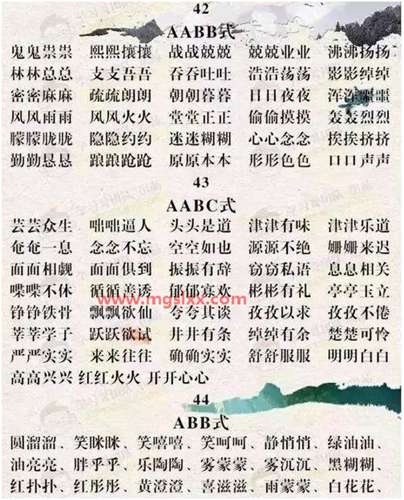 42
AABB式
鬼鬼祟祟 熙熙攘攘 战战兢兢 兢兢业业 沸沸扬扬
林林总总 支支吾吾 吞吞吐吐 浩浩荡荡 影影绰绰
密密麻麻 疏疏朗朗 朝朝暮暮 日日夜夜 浑浑噩噩
风风雨雨 风风火火 堂堂正正 偷偷摸摸 轰轰烈烈
朦朦胧胧 隐隐约约 迷迷糊糊 心心念念 挨挨挤挤
勤勤恳恳 踉踉跄跄 原原本本 形形色色 口口声声
43
AABC式
芸芸众生 咄咄逼人 头头是道 津津有味 津津乐道
奄奄一息 念念不忘 空空如也 源源不绝 姗姗来迟
面面相觑 面面俱到 振振有辞 窃窃私语 息息相关
喋喋不休 循循善诱 郁郁寡欢 彬彬有礼 亭亭玉立
www.mgslxx.com
铮铮铁骨 飘飘欲仙 夸夸其谈 孜孜以求 孜孜不倦
莘莘学子 跃跃欲试 井井有条 绰绰有余 楚楚可怜
严严实实 来来往往 确确实实 舒舒服服 明明白白
高高兴兴 红红火火 开开心心
44
ABB式
圆溜溜、笑眯眯、笑嘻嘻、笑呵呵、静悄悄、绿油油、
油亮亮、胖乎乎、乐陶陶、雾蒙蒙、雾沉沉、黑糊糊、
红扑扑、红彤彤、黄澄澄、喜滋滋、雨蒙蒙、白花花、